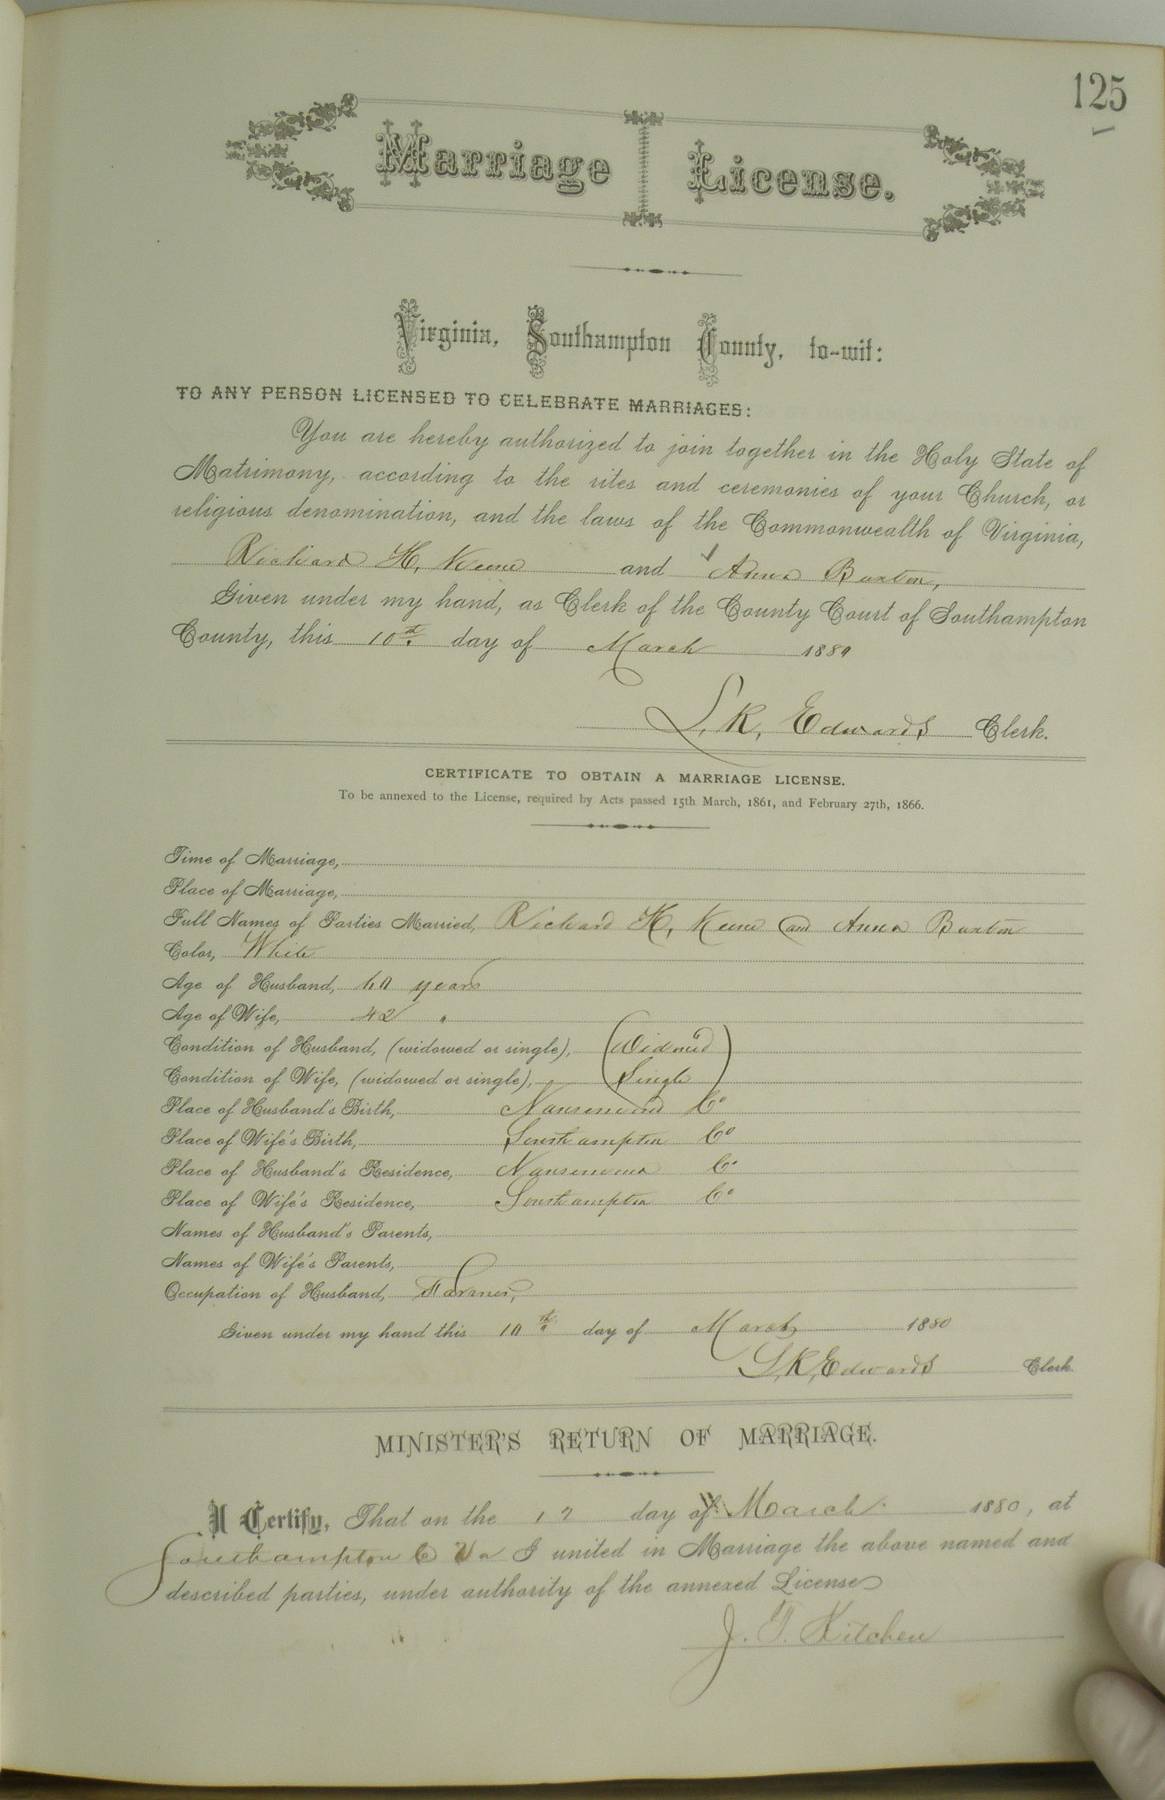 125
Marriage License.
Virginia, Southampton County, to-wit:
TO ANY PERSON LICENSED TO CELEBRATE MARRIAGES:
You are hereby authorized to join together in the Holy State of
Matrimony, according to the rites and ceremonies of your Church, or
religious denomination, and the laws of the Commonwealth of Virginia,
Richard H, Keene and Anna Barton,
Given under my hand, as Clerk of the County Court of Southampton
County, this 10th day of March 1880
L. R, Edwards Clerk.
CERTIFICATE TO OBTAIN A MARRIAGE LICENSE.
To be annexed to the License, required by Acts passed 15th March, 1861, and February 27th, 1866.
Time of Marriage,
Place of Marriage,
Full Names of Parties Married, Richard H, Keene and Anna Barton
Color, White
Age of Husband, 60 years
Age of Wife, 42 "
Condition of Husband, (widowed or single), Widowed
Condition of Wife, (widowed or single), Single
Place of Husband's Birth, Nansemond Co
Place of Wife's Birth, Southampton Co
Place of Husband's Residence, Nansemond Co
Place of Wife's Residence, Southampton Co
Names of Husband's Parents,
Names of Wife's Parents,
Occupation of Husband, Farmer,
Given under my hand this 10th day of March 1880
L, R, Edwards Clerk
MINISTER'S RETURN OF MARRIAGE.
I Certify, That on the 12 day of March 1880, at
Southampton Co Va I united in Marriage the above named and
described parties, under authority of the annexed License
J. T. Kitchen